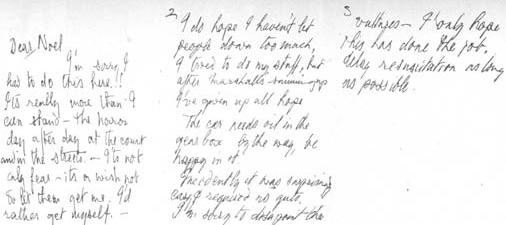 Dear Noel
I'm sorry I
has to do this here!!
It's really more than I
can stand – the horror
day after day at the court
and in the streets. – It's not
only fear – its a wish not
to let them get me. I'd
rather get myself. –
2
I do hope I haven't let
people down too much,
I tried to do my stuff, but
after Marshall's summing up
I've given up all hope
The car needs oil in the
gear box by the way, be
happy in it
Incidently it was surprising
easy & required no guts.
I'm sorry to disappoint the
3
vultures – I only hope
this has done the job.
delay resuscitation as long
as possible.